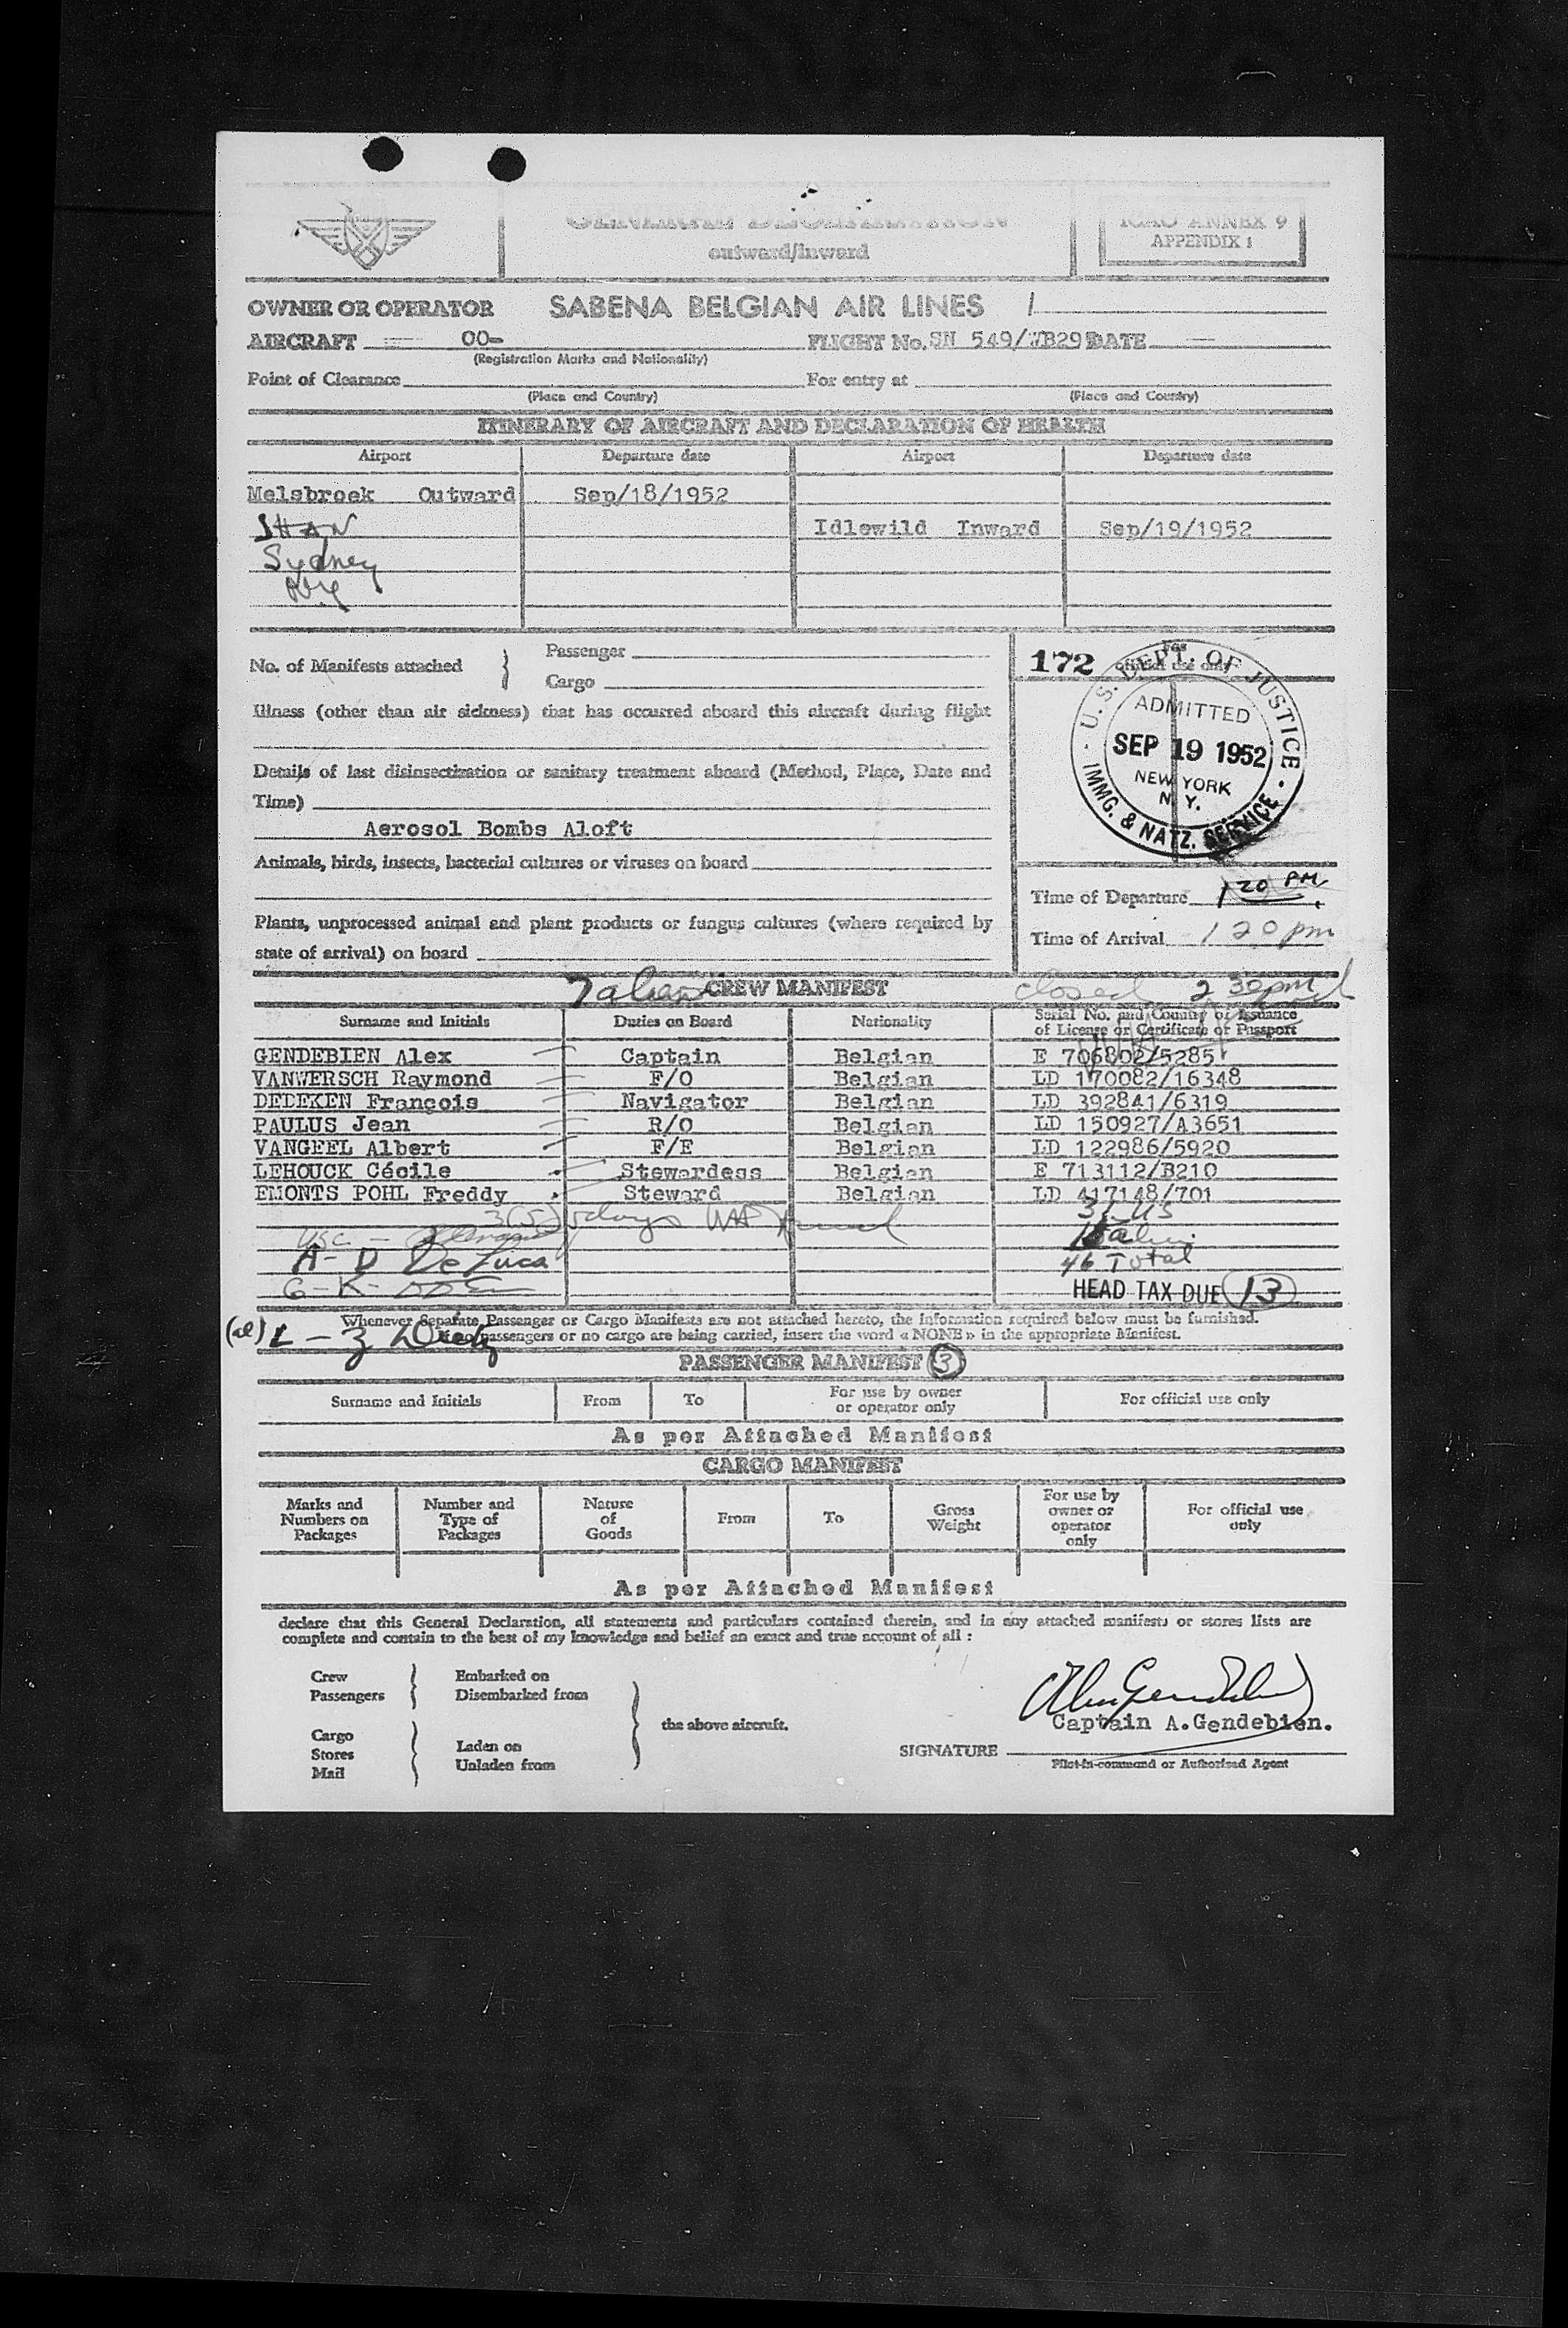 GENERAL DECLARATION
outward/inward
ICAO ANNEX 9
APPENDIX 1
OWNER OR OPERATOR SABENA BELGIAN AIR LINES
AIRCRAFT OO- FLIGHT No. SN 549/ DATE
(Registration Marks and Nationality)
Point of Clearance For entry at
(Place and Country) (Place and Country)
ITINERARY OF AIRCRAFT AND DECLARATION OF HEALTH
Airport Departure date Airport Departure date
Melsbroek Outward Sep/18/1952
SHAN Idlewild Inward Sep/19/1952
Sydney
No. of Manifests attached } Passenger
Cargo
172 For official use only
U.S. DEPT. OF JUSTICE
ADMITTED
SEP 19 1952
NEW YORK
N.Y.
IMMG. & NATZ. SERVICE
Illness (other than air sickness) that has occurred aboard this aircraft during flight
Details of last disinsectization or sanitary treatment aboard (Method, Place, Date and
Time)
Aerosol Bombs Aloft
Animals, birds, insects, bacterial cultures or viruses on board
Plants, unprocessed animal and plant products or fungus cultures (where required by
state of arrival) on board
Time of Departure 1 20 PM
Time of Arrival 1 20 pm
CREW MANIFEST closed 2 30 pm
Surname and Initials Duties on Board Nationality Serial No. and Country of Issuance
of License or Certificate or Passport
GENDEBIEN Alex Captain Belgian E 706802/5285
VANWERSCH Raymond F/O Belgian LD 170082/16348
DEDEKEN François Navigator Belgian LD 392841/6319
PAULUS Jean R/O Belgian LD 150927/A3651
VANGEEL Albert F/E Belgian LD 122986/5920
LEHOUCK Cécile Stewardess Belgian E 713112/B210
EMONTS POHL Freddy Steward Belgian LD 417148/701
days 31 US
USC -
A - D De Luca 46 Total
HEAD TAX DUE 13
L - Z
Whenever Separate Passenger or Cargo Manifests are not attached hereto, the information required below must be furnished.
If no passengers or no cargo are being carried, insert the word « NONE » in the appropriate Manifest.
PASSENGER MANIFEST 3
Surname and Initials From To For use by owner or operator only For official use only
As per Attached Manifest
CARGO MANIFEST
Marks and Numbers on Packages Number and Type of Packages Nature of Goods From To Gross Weight For use by owner or operator only For official use only
As per Attached Manifest
declare that this General Declaration, all statements and particulars contained therein, and in any attached manifests or stores lists are
complete and contain to the best of my knowledge and belief an exact and true account of all :
Crew
Passengers
Embarked on
Disembarked from
Cargo
Stores
Mail
Laden on
Unladen from
the above aircraft.
Captain A.Gendebien.
SIGNATURE
Pilot-in-command or Authorised Agent